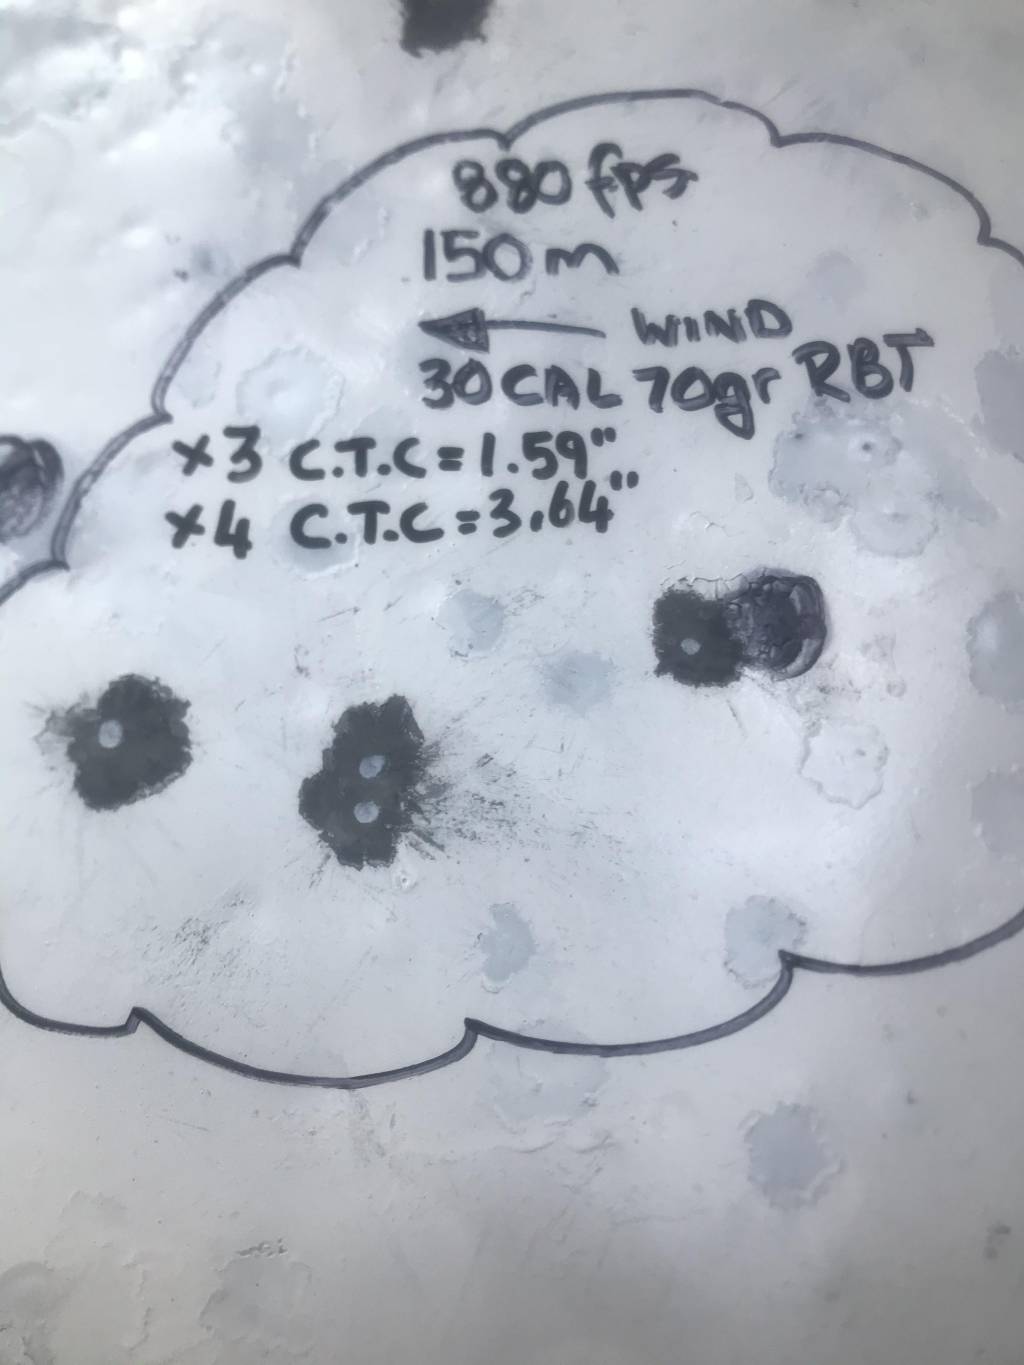 880 fps
150 m
WIND
30 CAL 70gr RBT
x3 C.T.C = 1.59"
x4 C.T.C = 3.64"